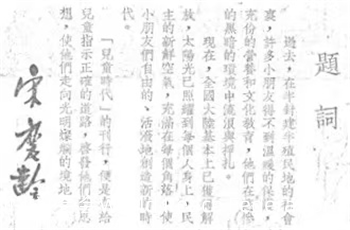 題詞
過去，在半封建半殖民地的社會
裏，許多小朋友得不到溫暖的保
充份的營養和文化教育，他們在
的黑暗的環境中徬徨與掙扎。
現在，全國大陸基本上已獲得解
放，太陽光已照耀到每個人身上，民
主的新鮮空氣，充滿在每個角落，使
小朋友們自由的、活潑地創造新的時
代。
「兒童時代」的刊行，便是在給
兒童指示正確的道路，啓發他們思
想，使他們走向光明燦爛的境地。
宋慶齡